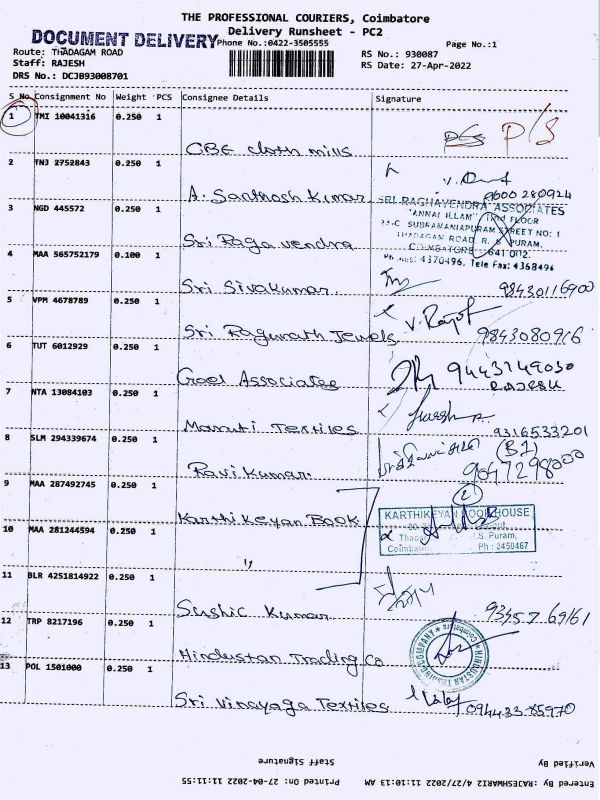 THE PROFESSIONAL COURIERS, Coimbatore
DOCUMENT DELIVERY
Phone No.:0422-3505555
Delivery Runsheet - PC2
Page No.:1
Route: THADAGAM ROAD
RS No.: 930087
Staff: RAJESH
RS Date: 27-Apr-2022
DRS No.: DCJB93008701
S No Consignment No Weight PCS Consignee Details Signature
1 TMI 10041316 0.250 1
CBE cloth mills P/S P/S
2 TNJ 2752843 0.250 1
A. Santhosh Kumar 9600 280924
3 NGD 445572 0.250 1
SRI RAGHAVENDRA ASSOCIATES
"ANNAI ILLAM" FLOOR
SUBRAMANIAPURAM STREET NO: 1
THADAGAM ROAD R. S. PURAM,
COIMBATORE - 641 002.
Phones: 4370496, Tele Fax: 4368496
Sri Raga vendra
4 MAA 565752179 0.100 1
Sri Sivakumar 98430116900
5 VPM 4678789 0.250 1
Sri Ragunath Jewels 9843080916
6 TUT 6012929 0.250 1
Goel Associates 9443149030
RAJESH
7 NTA 13084103 0.250 1
Maruti Textiles 9316533201
8 SLM 294339674 0.250 1
Ravi Kumar. 9047298000
9 MAA 287492745 0.250 1
Karthikeyan Book
KARTHIKEYAN BOOK HOUSE
R.S. Puram,
Ph : 2450467
10 MAA 281244594 0.250 1
"
11 BLR 4251814922 0.250 1
Sushic Kumar 93457 69161
12 TRP 8217196 0.250 1
Hindustan Trading Co
HINDUSTAN TRADING COMPANY
Coimbatore
13 POL 1501000 0.250 1
Sri Vinayaga Textiles
Staff Signature
Verified By
Printed On: 27-04-2022 11:11:55
Entered By : RAJESHWARI2 4/27/2022 11:10:13 AM